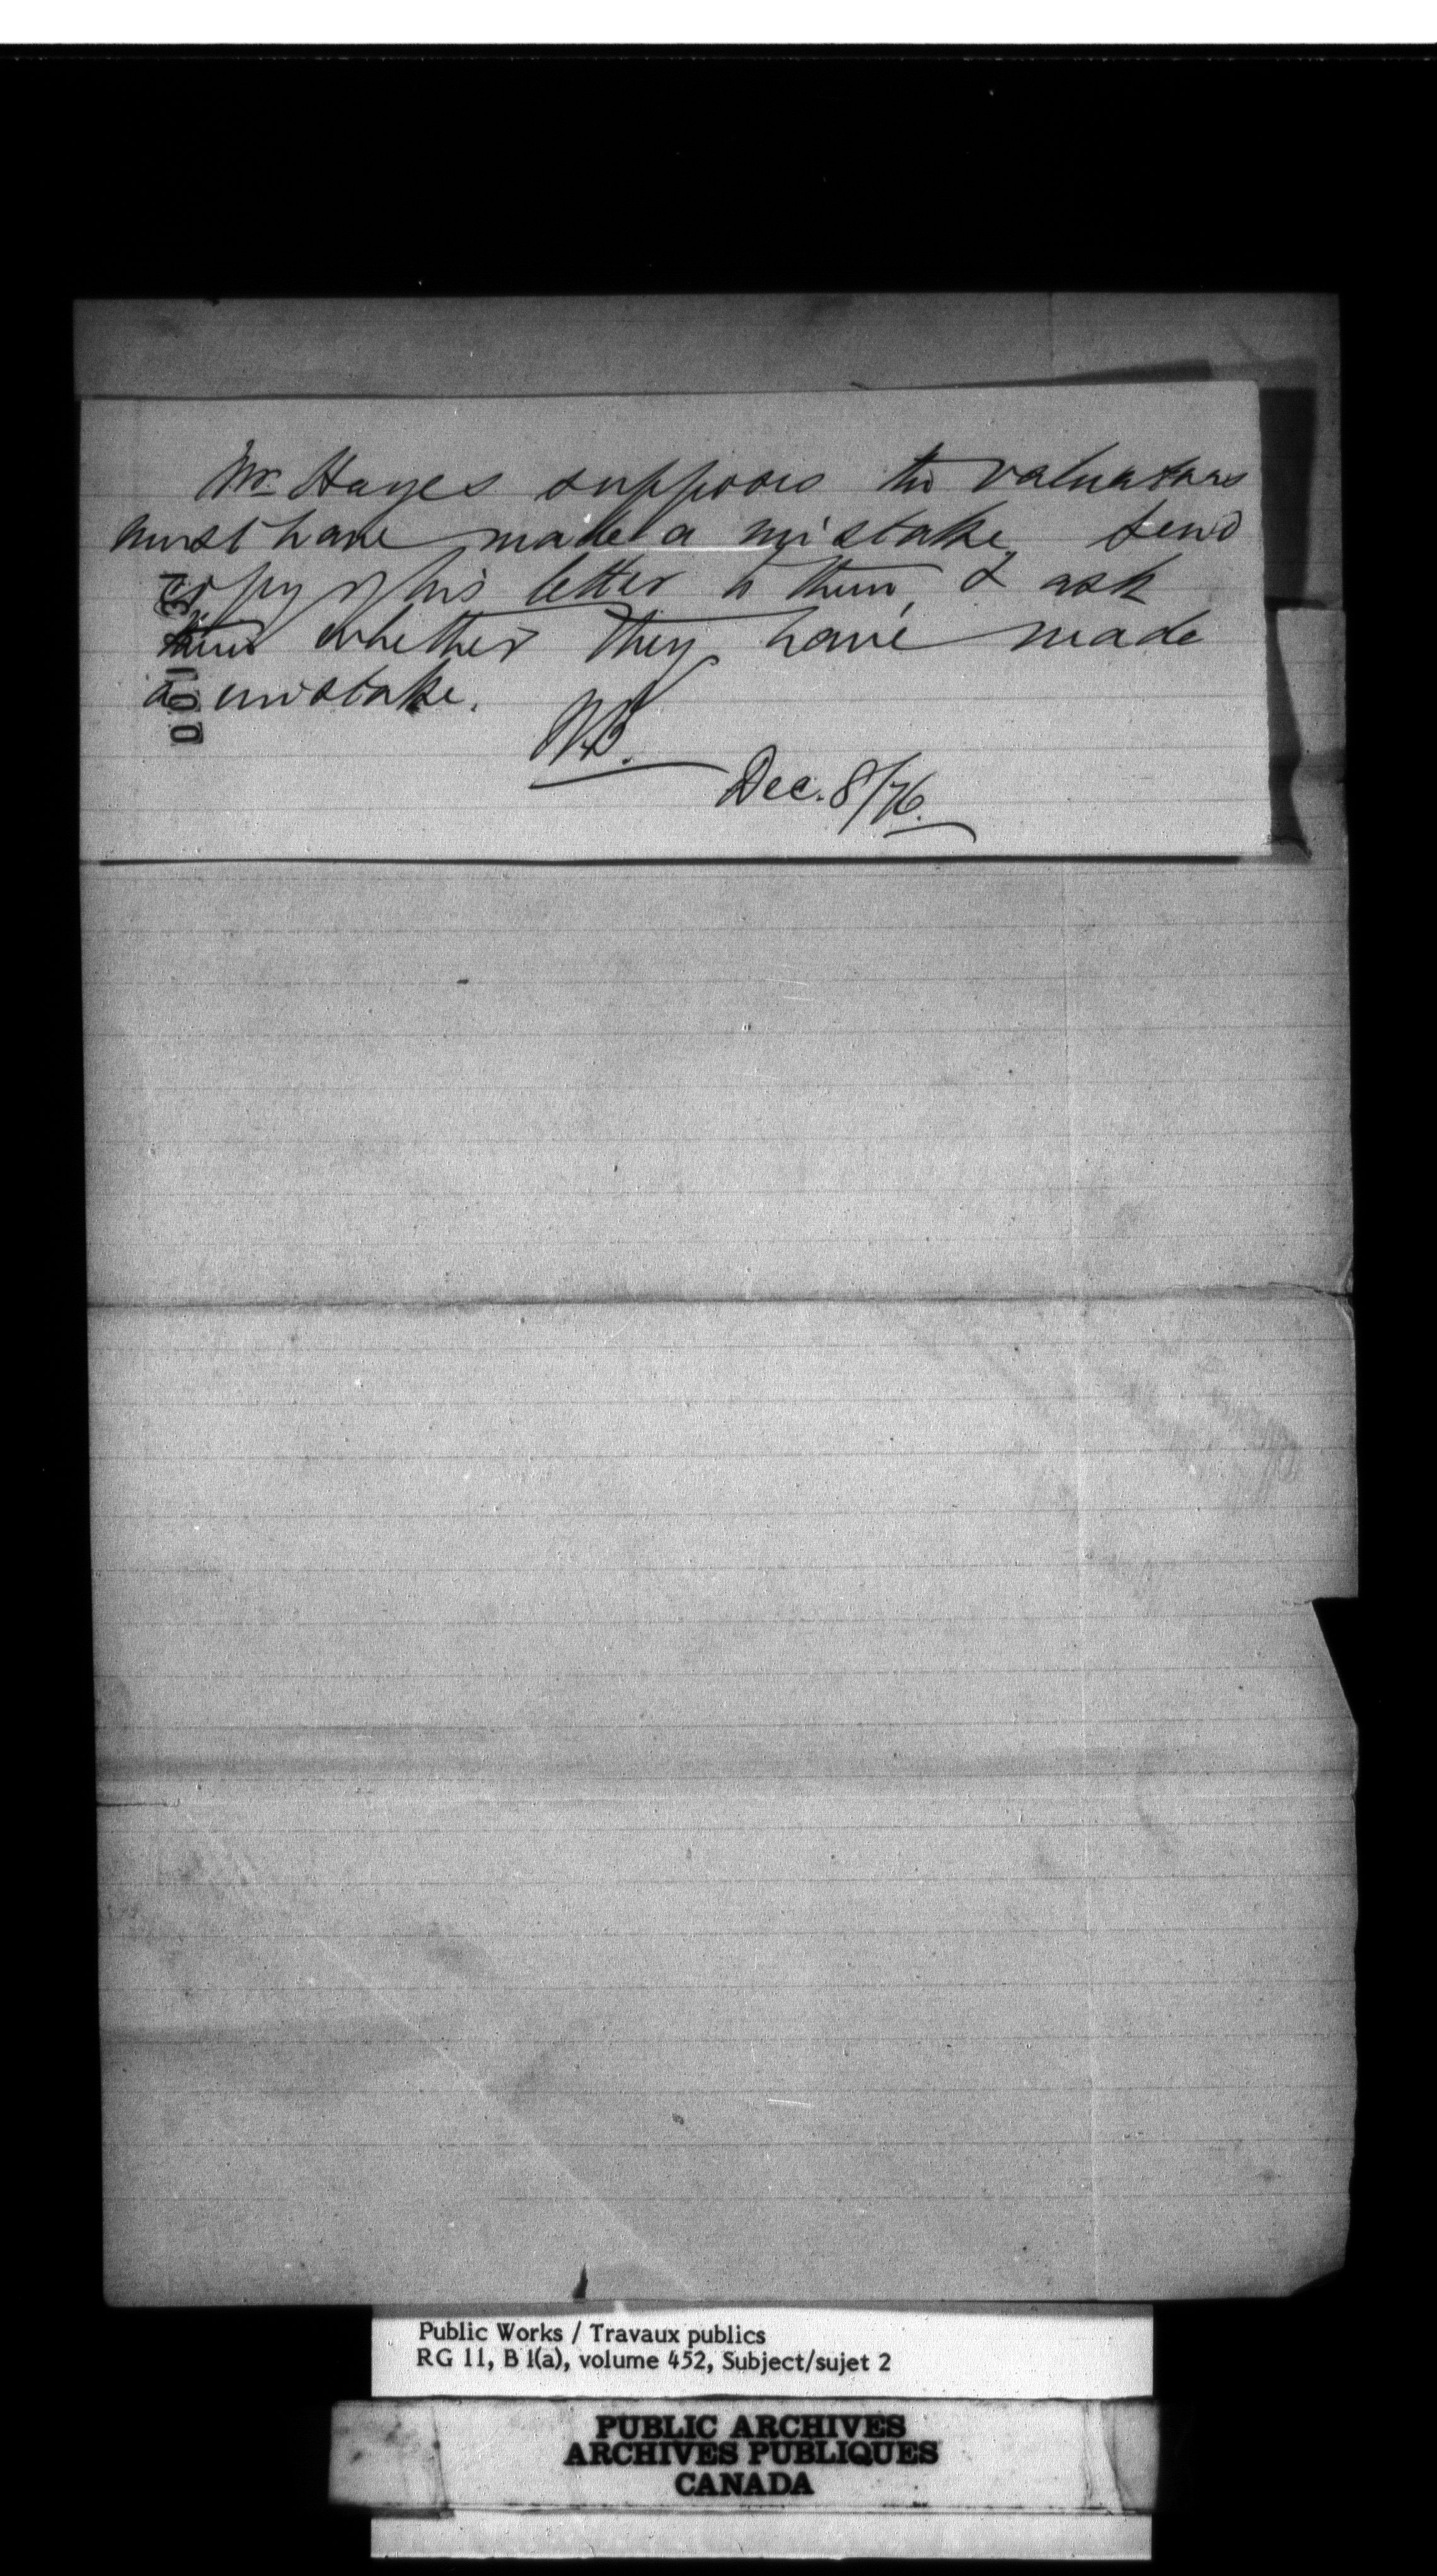 Mr. Hayes supposes the valuators
must have made a mistake. Send
copy of his letter to them, & ask
them whether they have made
a mistake.
Dec. 8/76.
Public Works / Travaux publics
RG 11, B 1(a), volume 452, Subject/sujet 2
PUBLIC ARCHIVES
ARCHIVES PUBLIQUES
CANADA